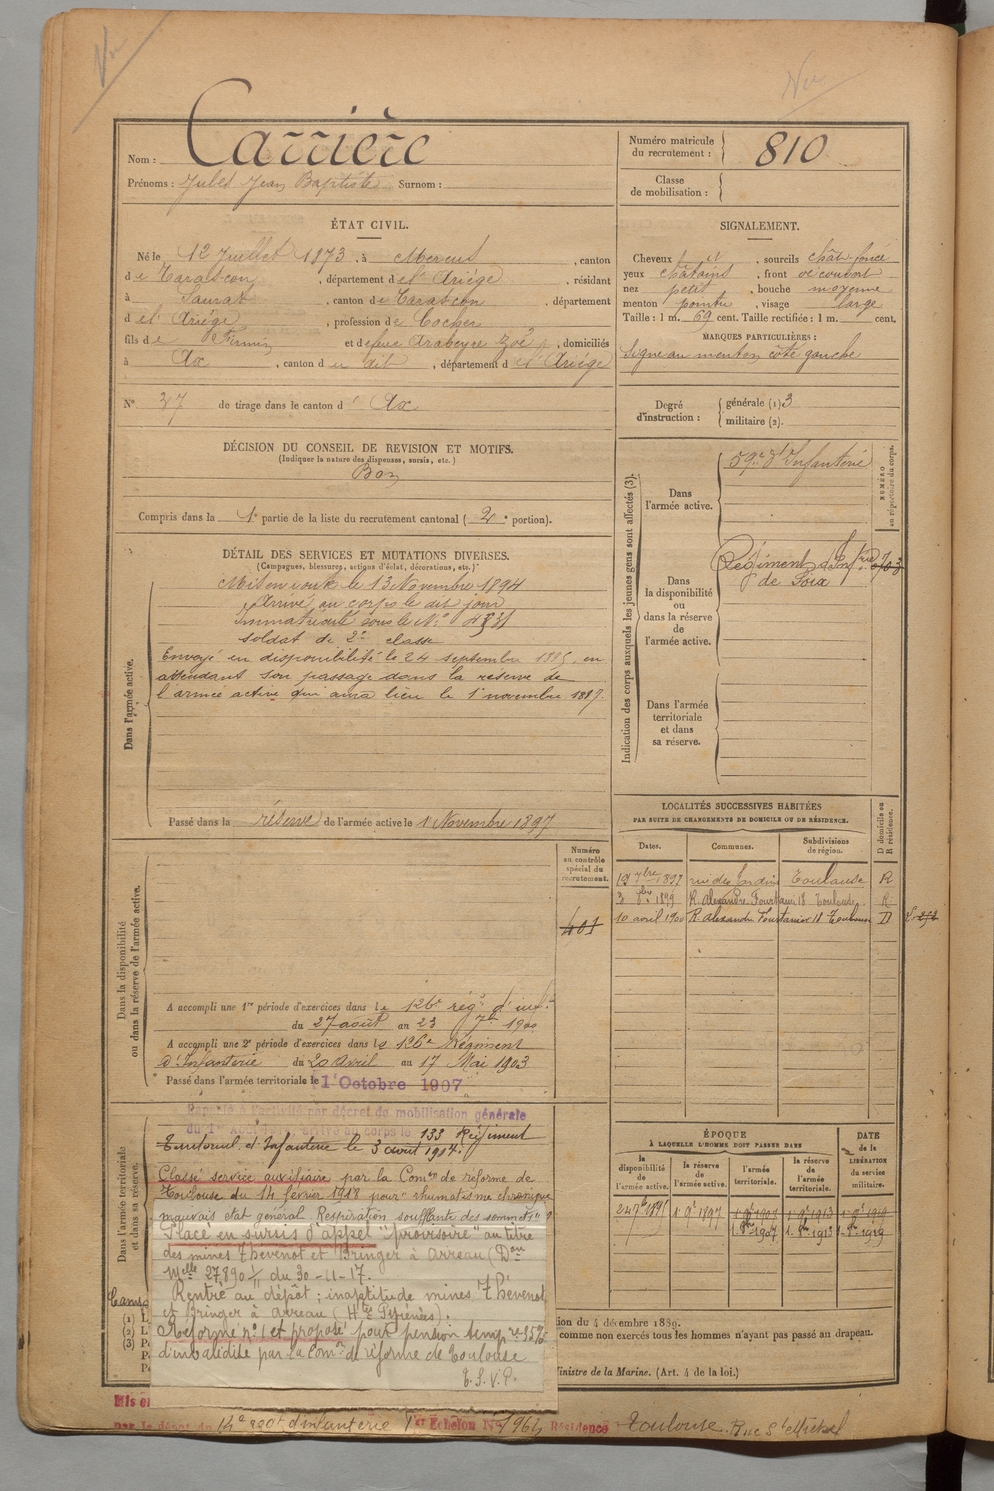 Nom : Carrière
Prénoms : Jules Jean Baptiste Surnom :
Numéro matricule
du recrutement : 810
Classe
de mobilisation :
ÉTAT CIVIL.
Né le 12 Juillet 1873, à Mercus, canton
de Tarascon, département de l'Ariège, résidant
à Saurat, canton de Tarascon, département
de l'Ariège, profession de Cocher
fils de Firmin et de feue Arabeyre Zoé, domiciliés
à Ax, canton du dit, département de l'Ariège
N° 37 de tirage dans le canton d' Ax
SIGNALEMENT.
Cheveux et, sourcils chât. foncé
yeux châtains, front découvert
nez petit, bouche moyenne
menton pointu, visage large
Taille : 1 m. 69 cent. Taille rectifiée : 1 m. cent.
MARQUES PARTICULIÈRES :
Signe au menton côté gauche
Degré
d'instruction :
générale (1) 3
militaire (2).
DÉCISION DU CONSEIL DE REVISION ET MOTIFS.
(Indiquer la nature des dispenses, sursis, etc.)
Bon
Compris dans la 1e partie de la liste du recrutement cantonal ( 2e portion).
DÉTAIL DES SERVICES ET MUTATIONS DIVERSES.
(Campagnes, blessures, actions d'éclat, décorations, etc.)
Dans l'armée active.
Mis en route le 13 Novembre 1894
Arrivé au corps le dit jour
Immatriculé sous le N°
soldat de 2e classe
Envoyé en disponibilité le 24 septembre 1895, en
attendant son passage dans la réserve de
l'armée active qui aura lieu le 1er novembre 1897.
Passé dans la réserve de l'armée active le 1 Novembre 1897
Indication des corps auxquels les jeunes gens sont affectés (3).
NUMÉRO
au répertoire du corps.
Dans
l'armée active.
59e d'Infanterie
Dans
la disponibilité
ou
dans la réserve
de
l'armée active.
Régiment d'Infrie
de Foix
Dans l'armée
territoriale
et dans
sa réserve.
LOCALITÉS SUCCESSIVES HABITÉES
PAR SUITE DE CHANGEMENTS DE DOMICILE OU DE RÉSIDENCE.
Dates. Communes. Subdivisions
de région.
D domicile ou
R résidence.
19 7bre 1897 rue des Jardins Toulouse R
3 1899 R. Alexandre Fourtanier 18 Toulouse R
10 avril 1900 R. Alexandre Fourtanier 18 Toulouse D
Numéro
au contrôle
spécial du
recrutement.
401
Dans la disponibilité
ou dans la réserve de l'armée active.
A accompli une 1re période d'exercices dans le 126e rég. d'inf.
du 27 août au 23 7bre 1900
A accompli une 2e période d'exercices dans le 126e Régiment
d'Infanterie du 20 avril au 17 Mai 1903
Passé dans l'armée territoriale le 1er Octobre 1907
Dans l'armée territoriale
et dans sa réserve.
Rappelé à l'activité par décret de mobilisation générale
du 1er Août, arrivé au corps le 133 Régiment
Territorial d'Infanterie le 3 août 1914.
Classé service auxiliaire par la Comon de réforme de
Toulouse du 14 février 1918 pour "rhumatisme chronique
mauvais état général. Respiration soufflante des sommets"
Placé en sursis d'appel "provisoire" au titre
des mines Thévenot et Bringer à Arreau (Don
Melle 27.890 1/11 du 30-11-17.
Rentré au dépôt ; inaptitude mines Thévenot
et Bringer à Arreau (Htes Pyrénées).
Réformé n° 1 et proposé pour pension tempre 35%
d'invalidité par la Comon de réforme de Toulouse
T. S. V. P.
ÉPOQUE
À LAQUELLE L'HOMME DOIT PASSER DANS
DATE
de la
LIBÉRATION
du service
militaire.
la
disponibilité
de
l'armée active.
la réserve
de
l'armée active.
l'armée
territoriale.
la réserve
de l'armée
territoriale.
24 7bre 1895 1er 9bre 1897 1er 9bre 1907 1er 9bre 1913 1er 9bre 1919
1. 8bre 1907 1. 8bre 1913 1. 8bre 1919
Camp
(1) L
(2) L
(3) P
ion du 4 décembre 1889.
comme non exercés tous les hommes n'ayant pas passé au drapeau.
Ministre de la Marine. (Art. 4 de la loi.)
Mis e
par le dépôt du 14e regt d'infanterie 1er Échelon N° 964 Résidence Toulouse. Rue St Michel